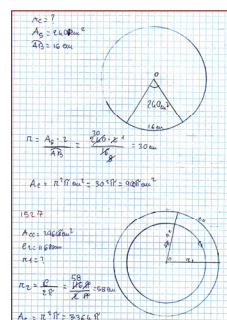 rc = ?
As = 240 cm²
AB = 16 cm
O
240 cm²
16 cm
r = As · 2 / AB = 240 · 2 / 16 = 30 cm
Ac = r²π cm² = 30²π = 900π cm²
1527
r1 = ?
r2 = C / 2π = 116π / 2π = 58 cm
Ac = r²π = 3364π